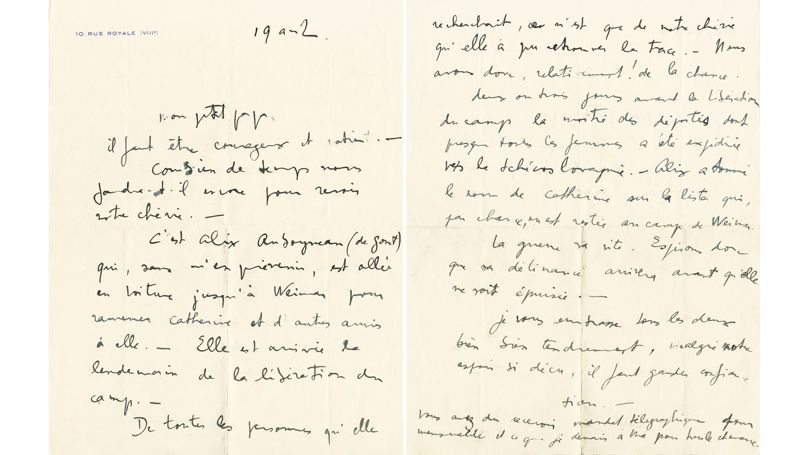 10, RUE ROYALE (VIIIe)
19 avril.
mon petit papa,
il faut être courageux et patient. —
Combien de temps nous
faudra-t-il encore pour revoir
notre chérie. —
C'est Alix Auboyneau (de Gout)
qui, sans m'en prévenir, est allée
en voiture jusqu'à Weimar pour
ramener Catherine et d'autres amis
à elle. — Elle est arrivée le
lendemain de la libération du
camp. —
De toutes les personnes qu'elle
recherchait, ce n'est que de notre chérie
qu'elle a pu retrouver la trace. — Nous
avons donc, relativement! de la chance.
deux ou trois jours avant la libération
du camp la moitié des déportés dont
presque toutes les femmes a été expédiée
vers la Tchécoslovaquie. — Alix a trouvé
le nom de Catherine sur la liste qui,
par chance, en est restée au camp de Weimar.
La guerre va vite. Espérons donc
que sa délivrance arrivera avant qu'elle
ne soit épuisée. —
je vous embrasse tous les deux
bien bien tendrement, malgré notre
espoir si déçu, il faut garder confiance
tian. —
vous avez du recevoir mandat télégraphique pour
mensualité et ce que je devais à Ma pour